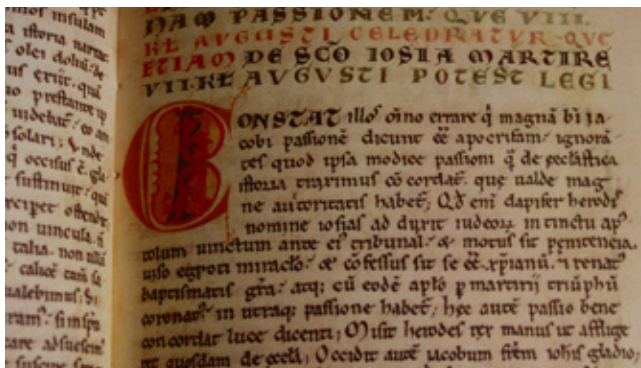 insulam
istoria narrat
olei dolia. de
qui
o prestante ip
uidebat. eo am
solari; Vnde
q̇ occisus ē. gla
sustinuit. qui
rcipet
non uincula.
talia. non
calicē tam sa
ualebimus; Si
ram. si in ipsa
care
NAꝘ PASSIONEM. QUE VIII.
KŁ AUGUSTI CELEBRATUR. QUE
ETIAM DE SC̄O IOSIA MARTIRE
VII. KŁ AUGUSTI POTEST LEGI
CONSTAT illos oīno errare q̇ magnā bī ia
cobi passionē dicunt ēē apocrifam. ignorā
tes quod ipsa modice passioni q̄ de ecclastica
istoria traximus cō cordat. que ualde mag
ne autoritatis habet; Qd̄ eni dapifer herodis
nomine iosias ad duxit iudeoꝝ in tinctu apꝰ
tolum uinctum ante eiꝰ tribunal. & motus sit penitencia.
uiso egroti miraclo. & cōfessus sit se ēē xp̄ianū. ⁊ renatꝰ
baptismatis gr̄a. atq; cū eodē aplo p martirij triūphū
coronatꝰ in utraq; passione habet; hec autē passio bene
concordat luce dicenti; Misit herodes rex manus ut afflige
ret quosdam de eccla; Occidit autē iacobum frēm iohīs gladio;